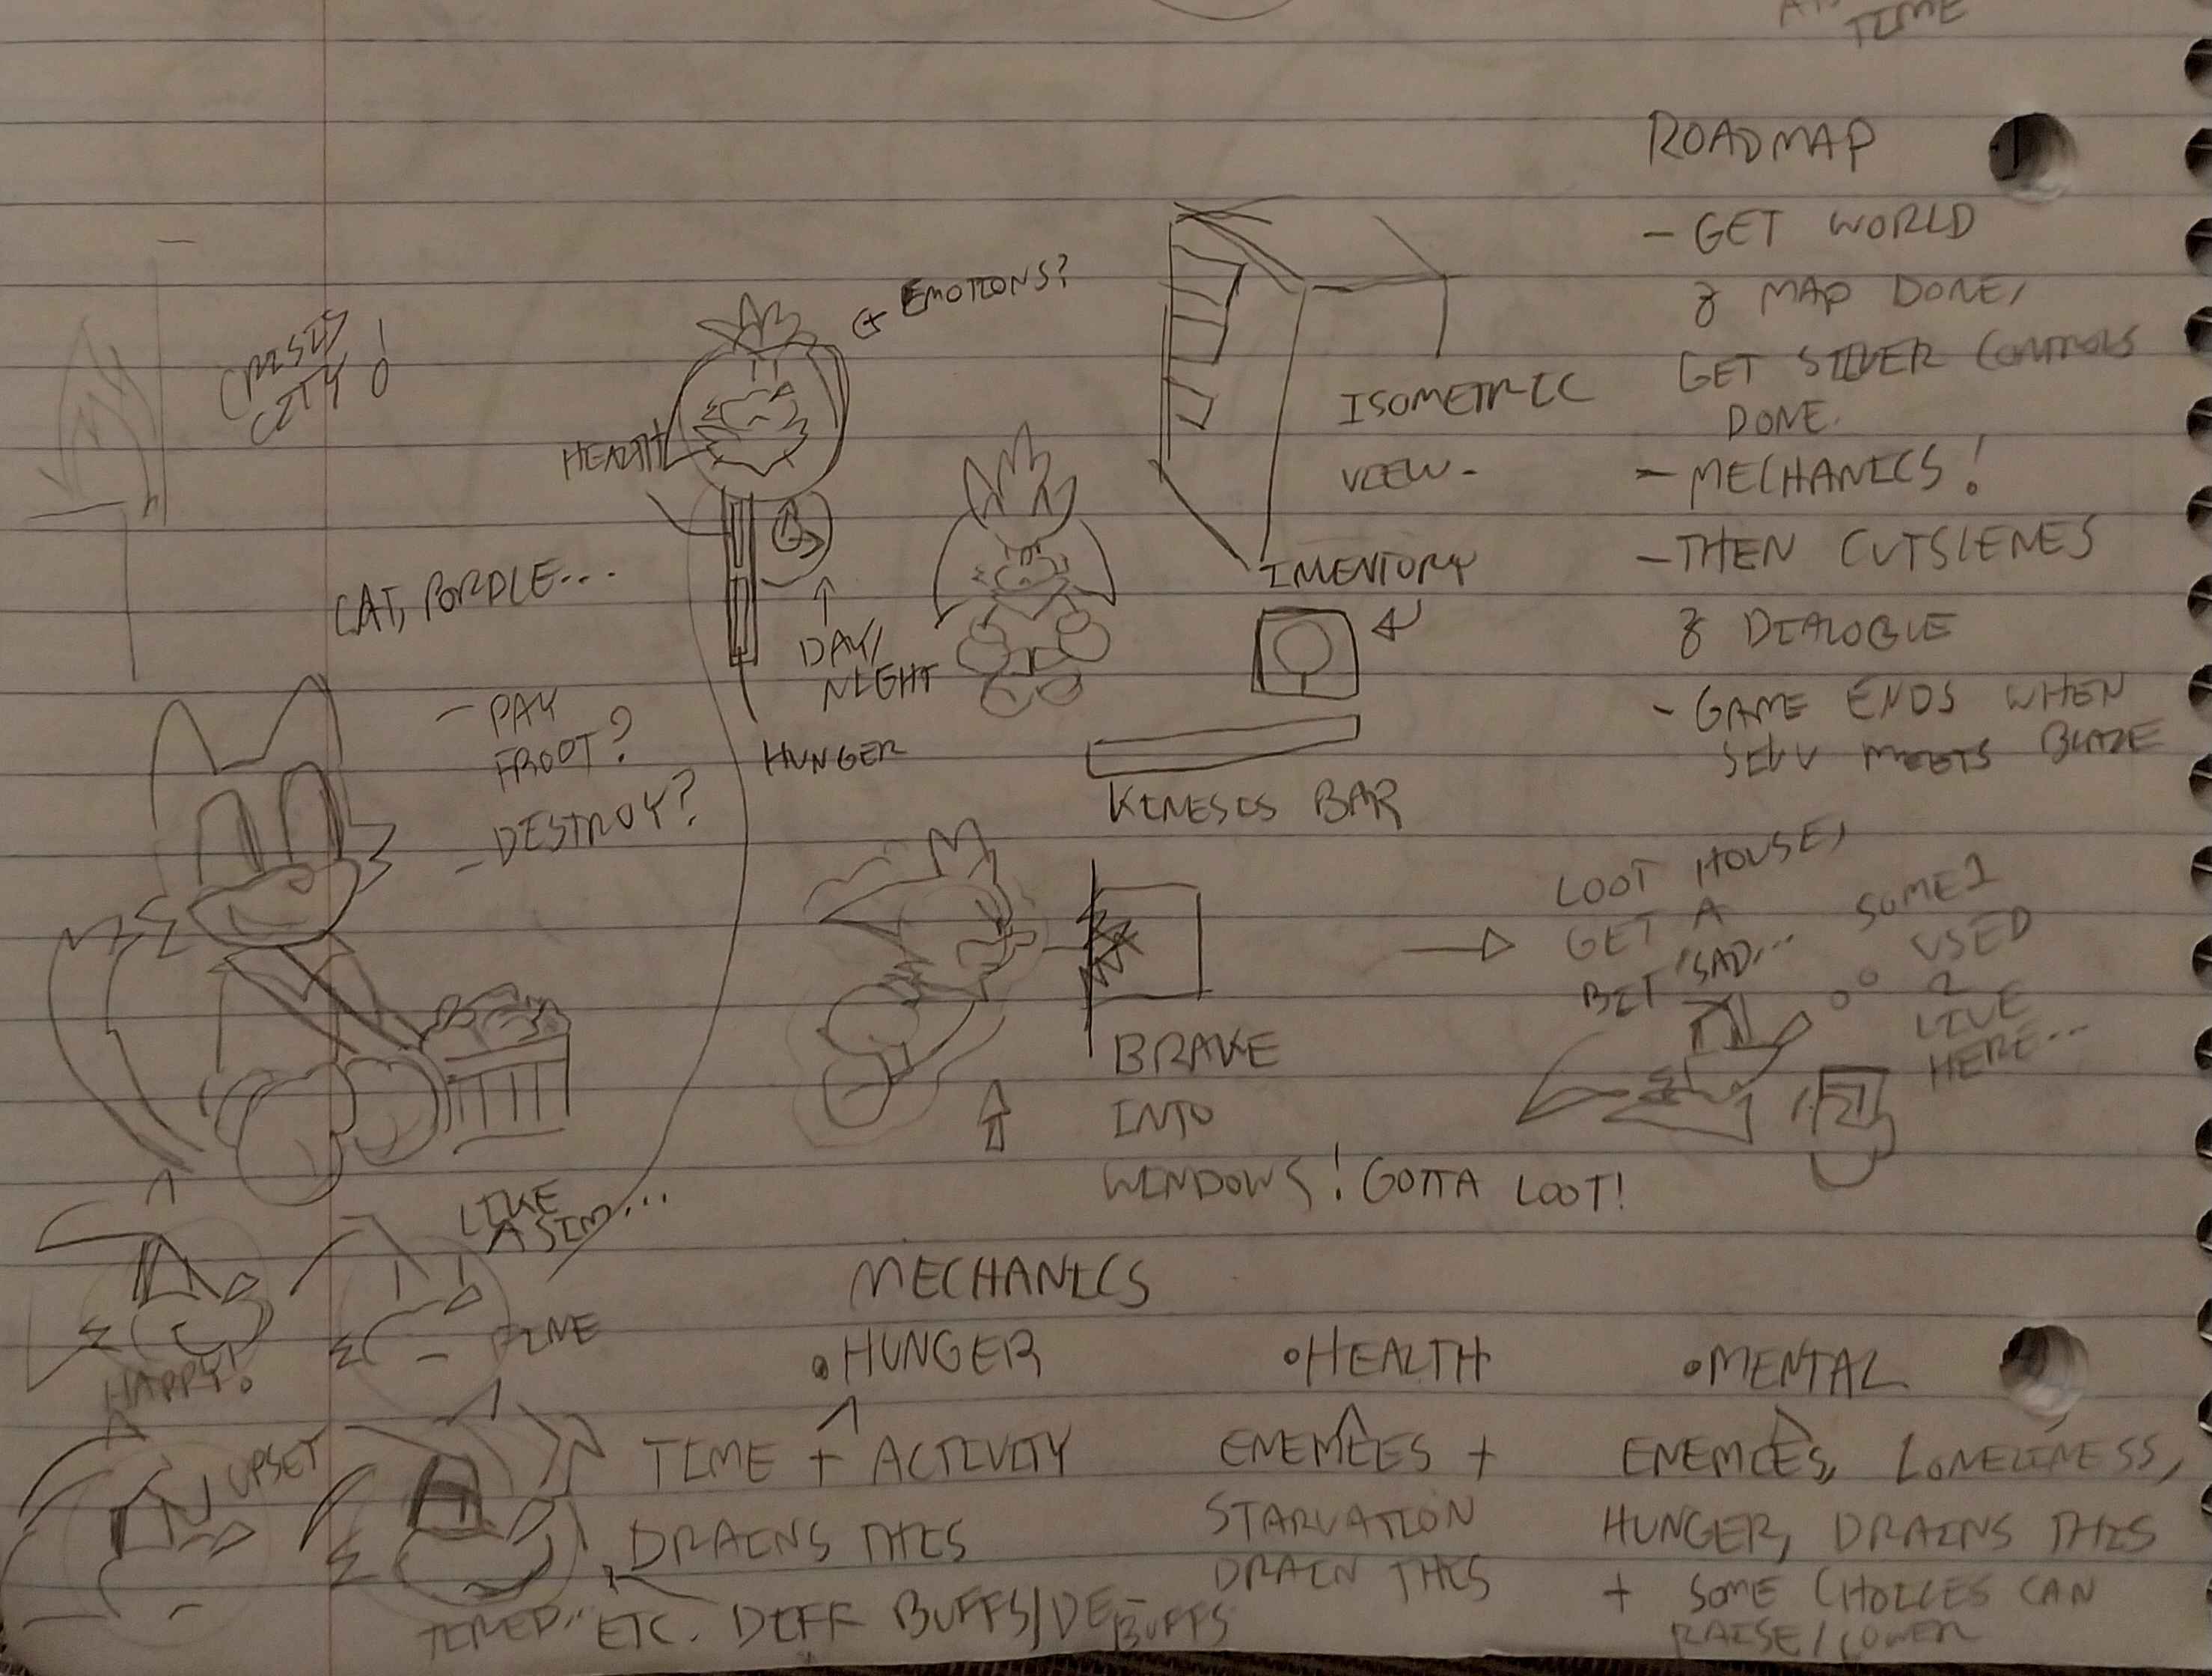 TIME
ROADMAP
- GET WORLD
& MAP DONE,
GET SILVER CONTROLS
DONE.
- MECHANICS!
- THEN CUTSCENES
& DIALOGUE
- GAME ENDS WHEN
SILV MEETS BLAZE
CRISIS
CITY!
EMOTIONS?
HEALTH
DAY/
NIGHT
HUNGER
ISOMETRIC
VIEW -
INVENTORY
KINESIS BAR
CAT, PORDLE...
- PAY
FROOT?
- DESTROY?
BRAKE
INTO
WINDOWS! GOTTA LOOT!
LOOT HOUSES,
GET A
BIT SAD...
SOME1
USED
2
LIVE
HERE...
LIKE
A SIM...
HAPPY!
FINE
UPSET
TIRED..
ETC. DIFF BUFFS/DE-
BUFFS
MECHANICS
• HUNGER
TIME + ACTIVITY
DRAINS THIS
• HEALTH
ENEMIES +
STARVATION
DRAIN THIS
• MENTAL
ENEMIES, LONELINESS,
HUNGER, DRAINS THIS
+ SOME CHOICES CAN
RAISE/LOWER